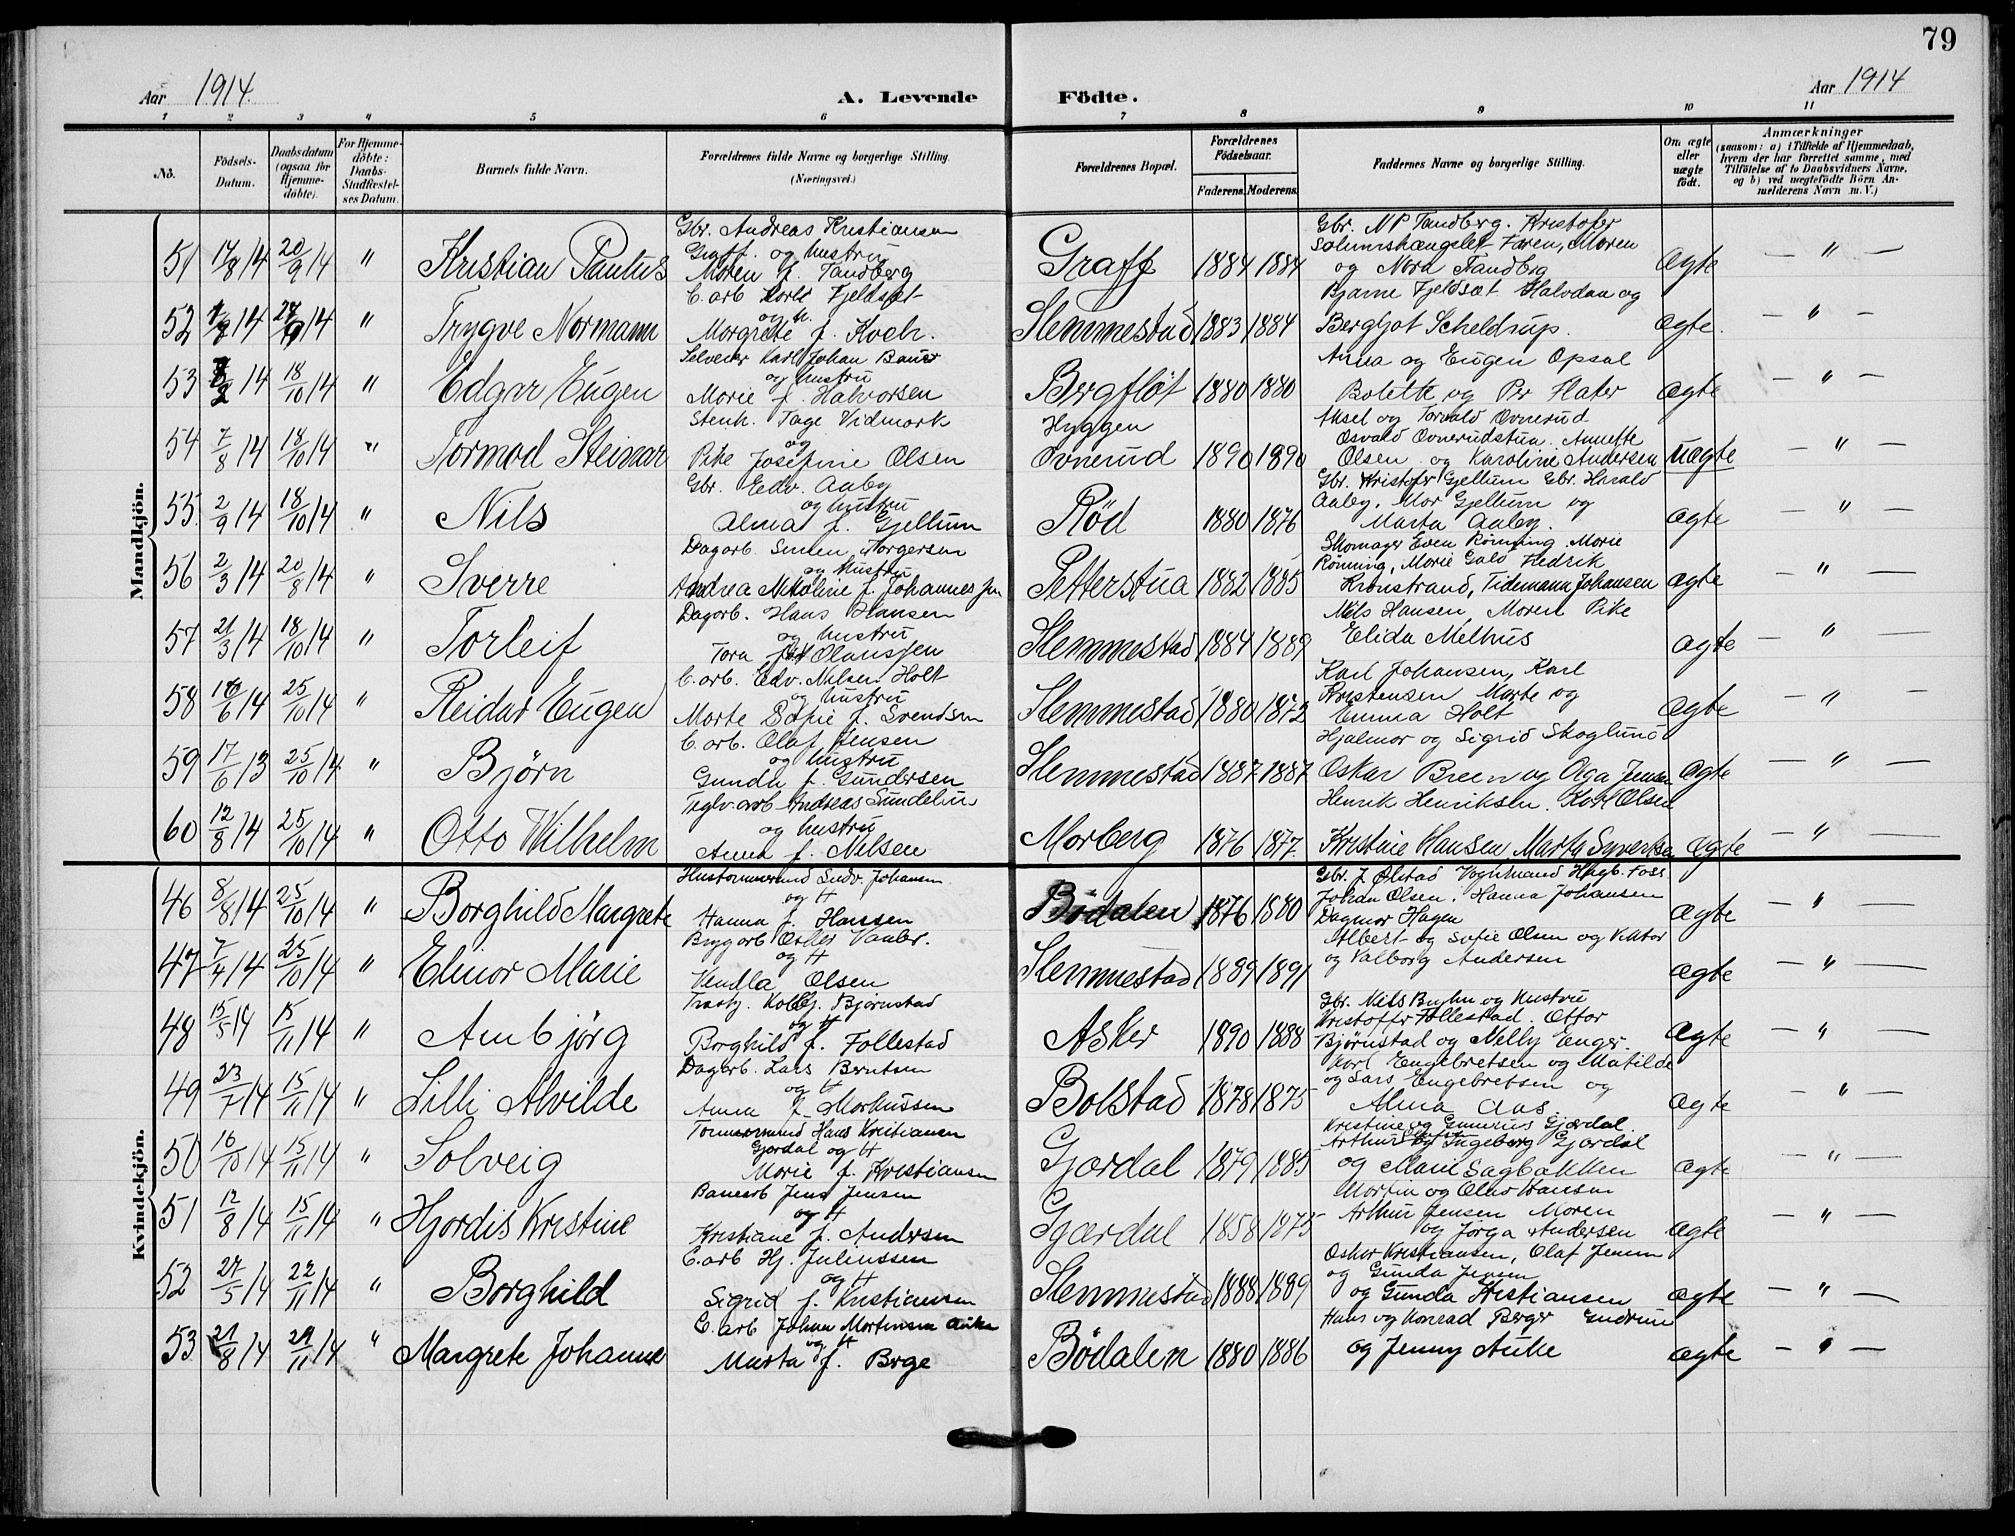 79
Aar 1914. A. Levende Födte. Aar 1914
1 2 3 4 5 6 7 8 9 10 11
No. Födsels-Datum. Daabsdatum (ogsaa for Hjemme-döbte). For Hjemme-döbte: Daabs-Stadfæstel-ses Datum. Barnets fulde Navn. Forældrenes fulde Navne og borgerlige Stilling. (Næringsvei.) Forældrenes Bopæl. Forældrenes Födselsaar. Faderens. Moderens. Faddernes Navne og borgerlige Stilling. Om ægte eller uægte født. Anmærkninger (saasom: a) i Tilfælde af Hjemmedaab, hvem der har forrettet samme, med Tilföielse af to Daabsvidners Navne, og b) ved uægtefödte Börn An-melderens Navn m. V.)
Mandkjön.
Gbr. Andreas Kristiansen Gbr. NP Tandberg. Kristofer
51 17/8 14 20/9 14 " Kristian Paulus Graff. og hustru Graff 1884 1884 Solumshængslet Faren, Moren ægte — " —
Moren f. Tandberg og Nora Tandberg
C. arb Fjeldsæt Bjarne Fjeldsæt Halvdan og
52 14 14 " Trygve Normann og h. Slemmestad 1883 1884 Bergljot Scheldrup. ægte. — " —
Margrete f. Koch.
Karl Johan Bauer Anna og Eugen Opsal
53 14 18/10 14 " Edgar Eugen og hustru Bergfløt 1880 1880 Botelle og Per Flater ægte — " —
Marie f. Halvorsen
Stenh. Tage Vidmark Hyggen Aksel og Torvald Ovnerud
54 7/8 14 18/10 14 " Tormod Steinar og Ovnerud 1890 1890 Osvald Ovnerudstua. Annette uægte — " —
Pike Josefine Olsen Olsen og Karoline Andersen
Gbr. Edv. Aaby Gbr. Kristofer Gjellum Gbr. Harald
55. 2/9 14 18/10 14 " Nils og hustru Rød 1880 1876 Aaby, Mor Gjellum og ægte — " —
Alma f. Gjellum Marta Aaby.
Dagarb. Simen Torgersen Skomager Even Rönning. Marie
56 2/3 14 20/8 14 " Sverre og hustru Petterstua 1882 1885 Rönning, Marie Gulo Hedrik ægte — " —
Andrea Nikoline f. Johannesen Kronstrand, Tidemann Johansen
Dagarb. Hans Hansen Nils Hansen, Moren Pike
57 21/3 14 18/10 14 " Torleif og hustru Slemmestad 1884 1889 Elida Melhus ægte — " —
Tora f. Olaussen
C. arb. Edv. Nilsen Holt Karl Johansen, Karl
58 6 14 25/10 14 " Reidar Eugen og hustru Slemmestad 1880 1872 Kristensen Marte og ægte — " —
Marte Sofie f. Svendsen Emma Holt
C. arb. Olaf Jensen Hjalmar og Sigrid Skoglund
59 17/6 13 25/10 14 " Björn og hustru Slemmestad 1887 1887 Oskar Breen og Olga Jensen ægte — " —
Gunda f. Gundersen
Teglv. arb Andreas Sundelin Henrik Henriksen. Karl Olsen
60 12/8 14 25/10 14 " Otto Wilhelm og hustru Morberg 1876 1877. Kristine Hansen Marte Syvertsen ægte — " —
Anna f. Nilsen
Kvindekjön.
Hustömmermand Ludv. Johansen Gbr. J. Ølstad Vognmand Hagb. Foss
46 8/8 14 25/10 14 " Borghild Margrete og H Bödalen 1876 1880 Johan Olsen. Hanna Johansen ægte — " —
Hanna f. Hansen Dagmar Hagen
Brygarb Albert og Sofie Olsen og Viktor
47 7/4 14 25/10 14 " Elinor Marie og H Slemmestad 1889 1891 og Valborg Andersen ægte — " —
Vendla Olsen
Kolbj. Bjørnstad Gbr. Niels Bruhn og hustru
48 15/5 14 15/11 14 " Arnbjörg og H Asker 1890 1888 Kristoffer Follestad. Ottar ægte — " —
Borghild f. Follestad Bjørnstad og Nelly Enger.
Dagarb. Lars Berntsen Karl Engebretsen og Matilde
49 23/7 14 15/11 14 " Lilli Alvilde og H Bolstad 1878 1875 og Lars Engebretsen og ægte — " —
Anna f. Markussen Alma Aas.
Tömmermand Hans Kristiansen Kristine og Gunerius Gjærdal.
50 16/10 14 15/11 14 " Solveig Gjærdal og H Gjærdal 1879 1885 Arthur og Ingeborg Gjærdal ægte — " —
Marie f. Kristiansen og Marie Sagbakken
Banearb Jens Jensen Martin og Olav Hansen
51 12/8 14 15/11 14 " Hjordis Kristine og H Gjærdal 1858 1875 Arthur Jensen Moren ægte — " —
Kristiane f. Andersen og Jørga Andersen
C. arb Hj. Juliussen Oskar Kristiansen, Olaf Jensen
52 27/5 14 22/11 14 " Borghild og H Slemmestad 1888 1889 og Gunda Jensen ægte — " —
Sigrid f. Kristiansen og Gunda Kristiansen
C. arb Johan Mortensen Auke Hans og Konrad Berger Gudrun
53 21/8 14 29/11 14 " Margrete Johanne og H Bödalen 1880 1886 og Jenny Auke ægte — " —
Marta f. Berge